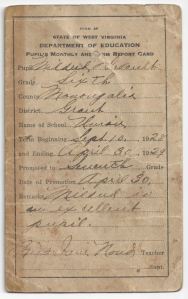 STATE OF WEST VIRGINIA
DEPARTMENT OF EDUCATION
Pupil's Monthly and Term Report Card
Pupil Mildred
Grade Sixth
County Monongalia
District Grant
Name of School
Term Beginning Sept. 10, 1928
and Ending April 30, 1929
Promoted to Seventh Grade
Date of Promotion April 30,
Remarks Mildred is
an excellent
pupil.
Teacher
Supt.